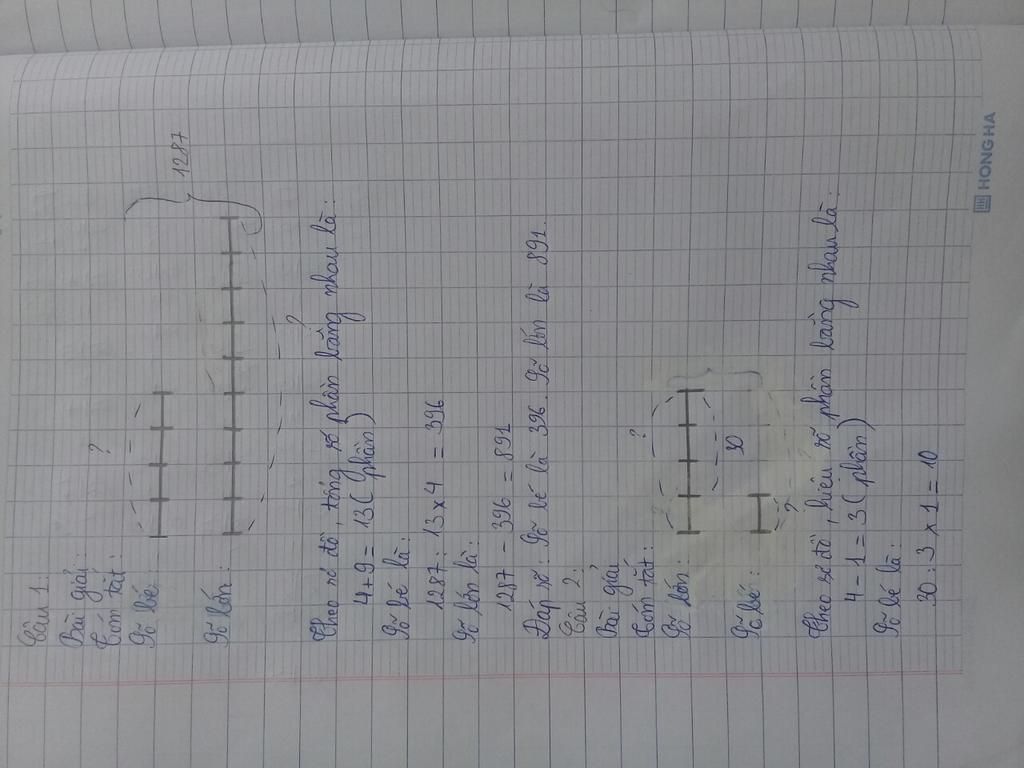 Câu 1:
Bài giải
Tóm tắt:
?
Số bé:
1287
Số lớn:
?
Theo sơ đồ, tổng số phần bằng nhau là:
4+9= 13( phần)
Số bé là:
1287: 13 x 4 = 396
Số lớn là:
1287 - 396 = 891
Đáp số: Số bé là 396. Số lớn là 891.
Câu 2:
Bài giải
Tóm tắt: ?
Số lớn:
30
Số bé:
?
Theo sơ đồ, hiệu số phần bằng nhau là:
4 - 1 = 3( phần)
Số bé là:
30 : 3 x 1 = 10
HONG HA